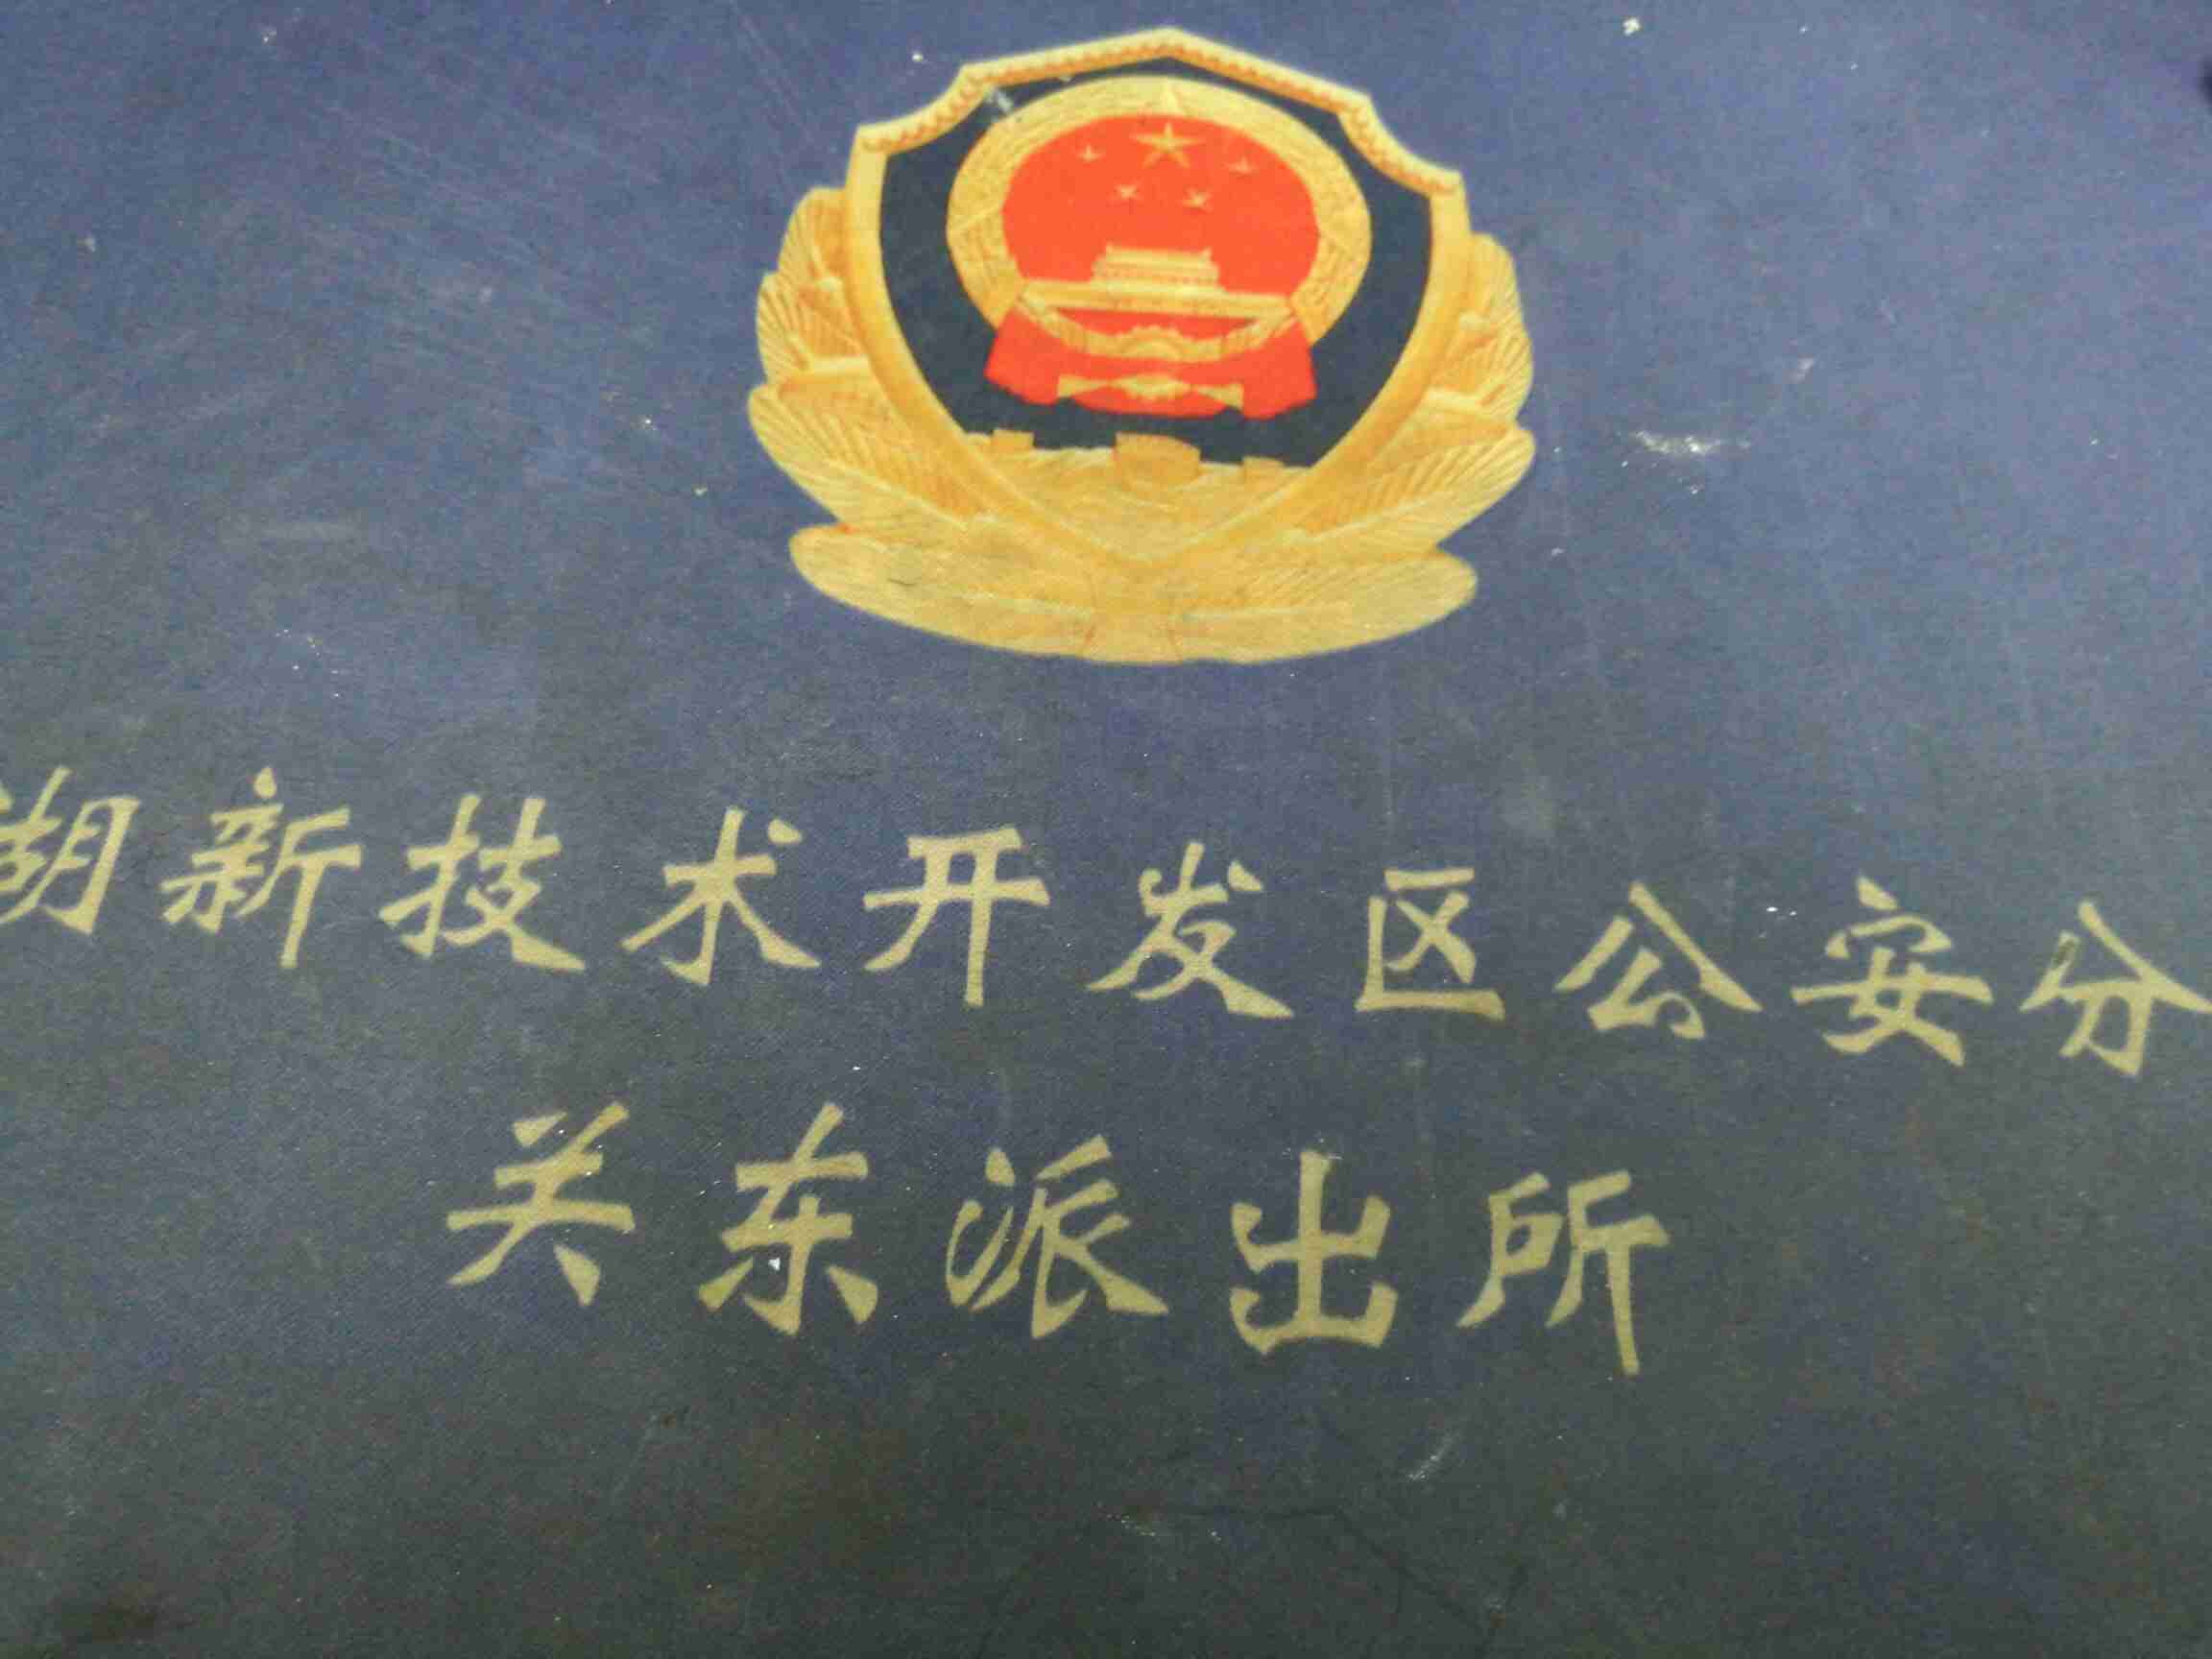 湖新技术开发区公安分
关东派出所